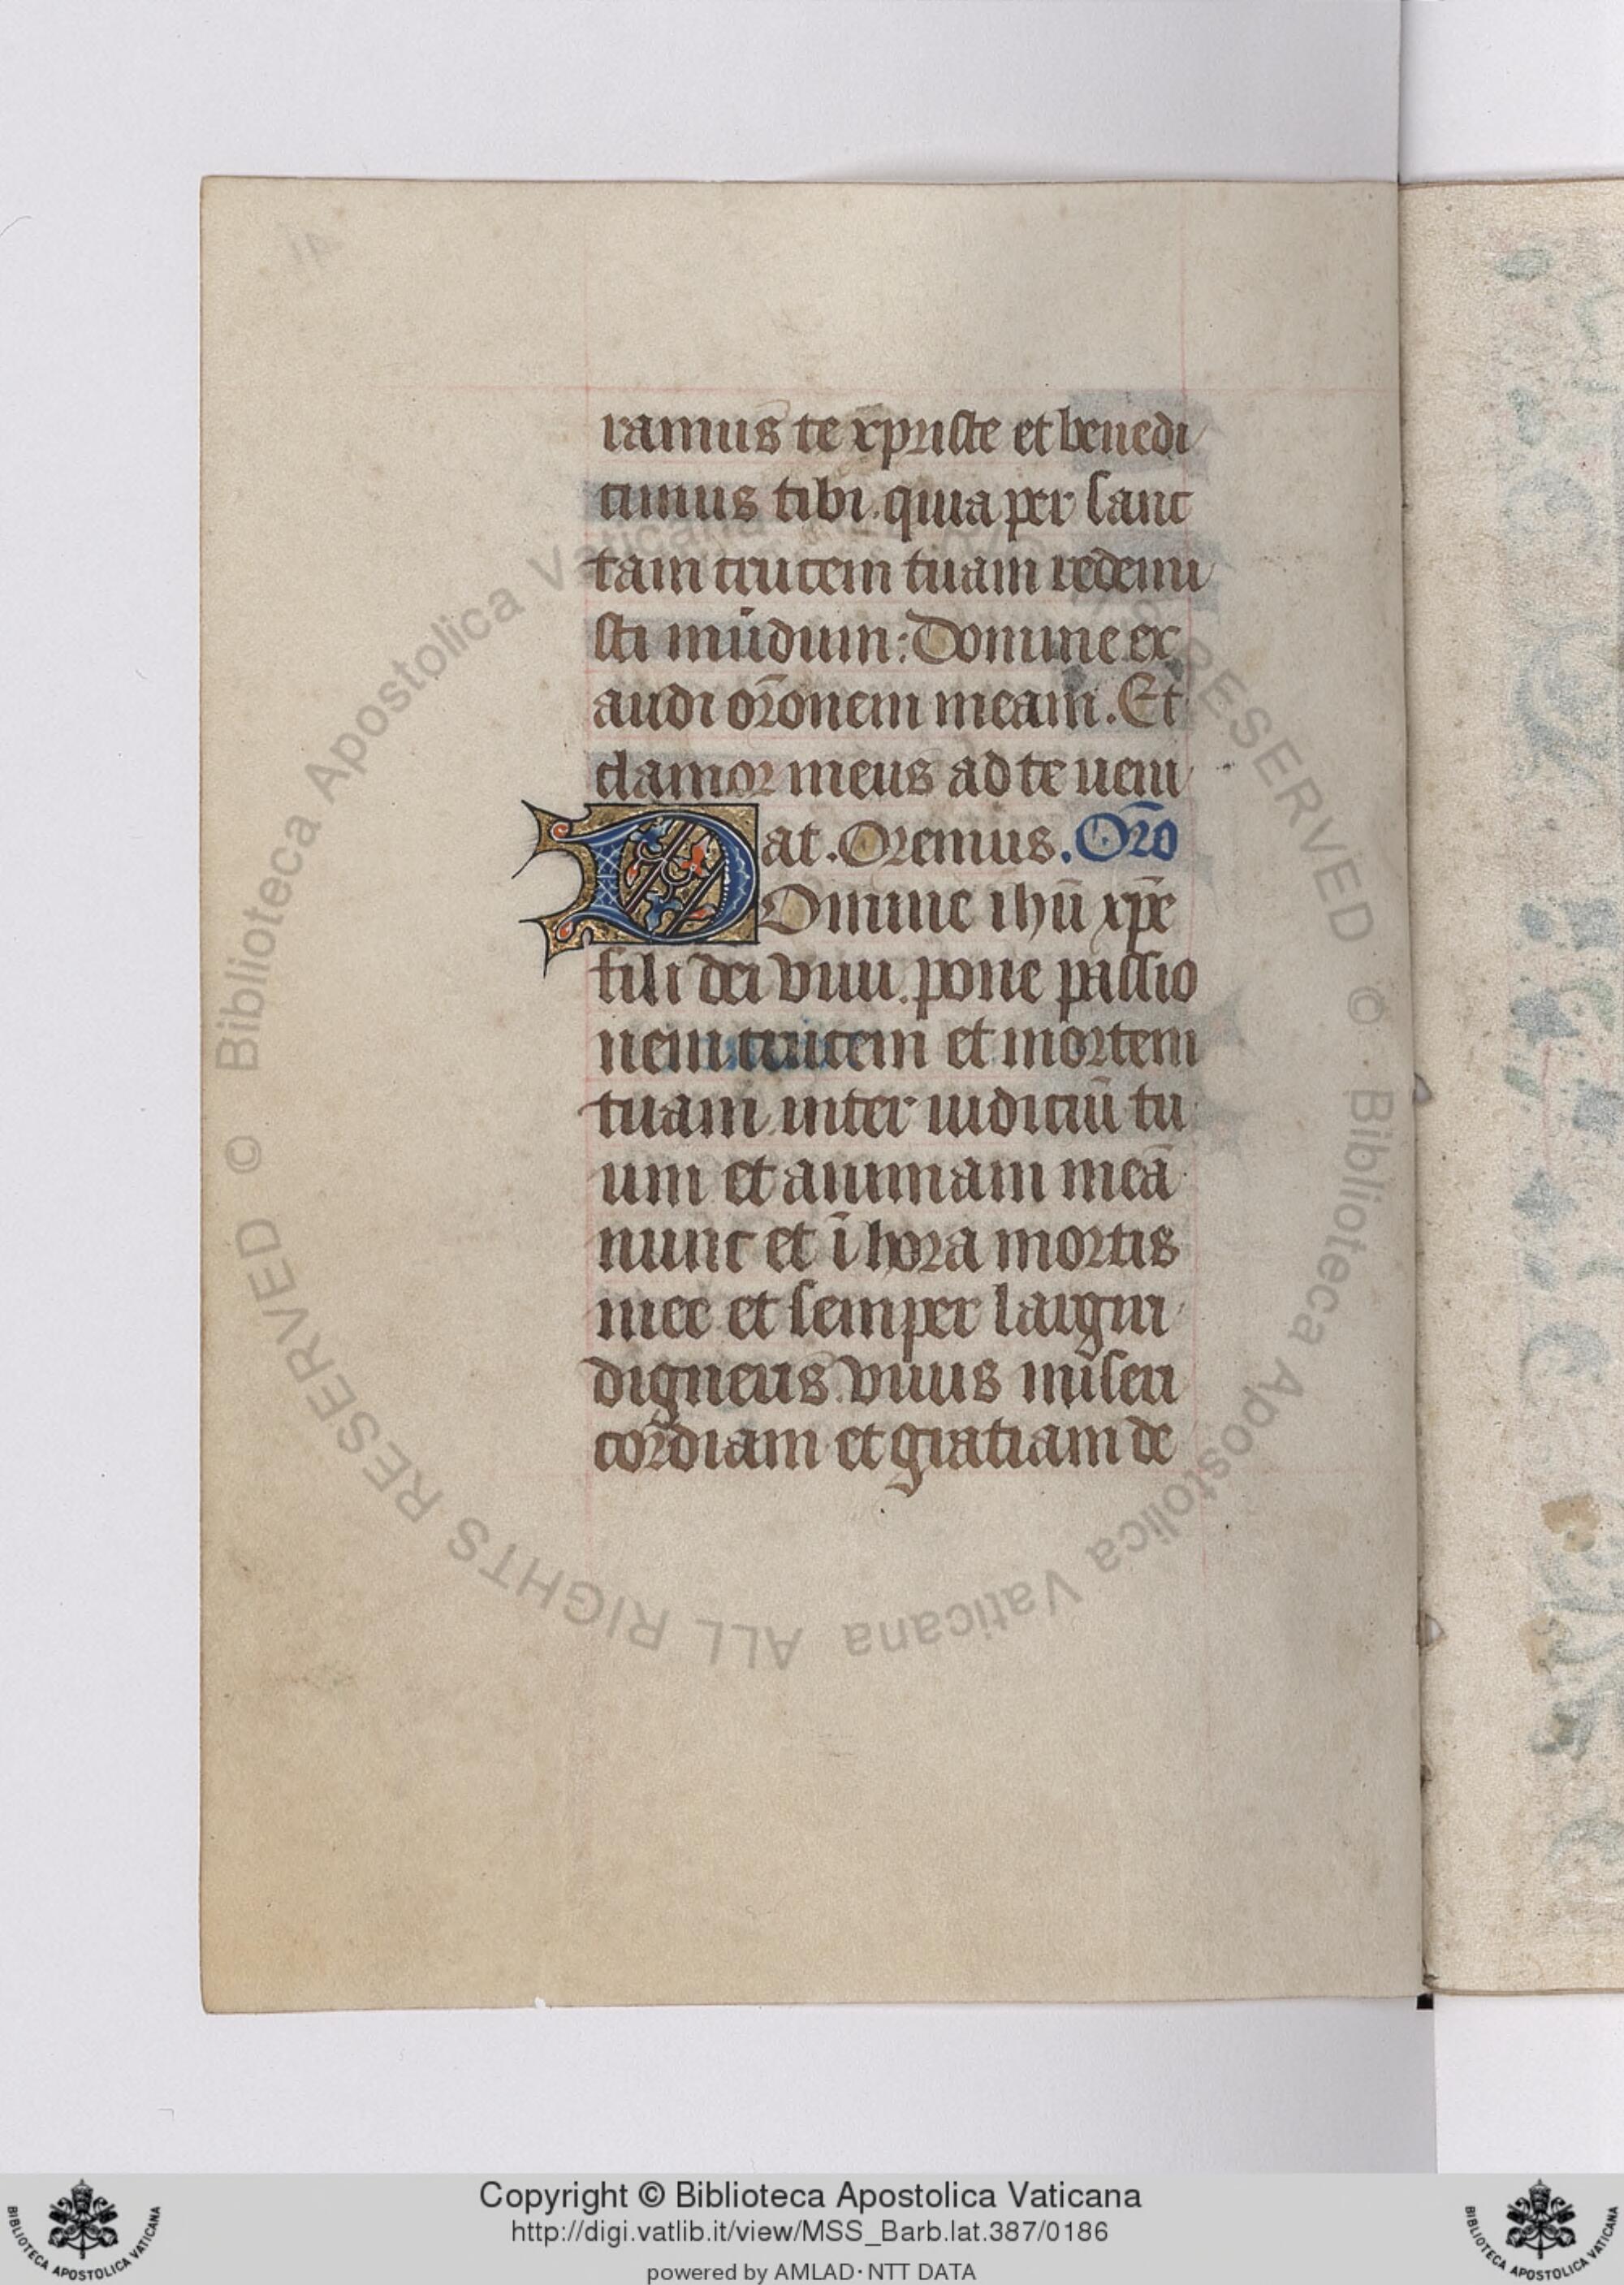 ramus te xpriste et benedi
cimus tibi. quia per sanc
tam crucem tuam redemi
sti mūdum: Domine ex
audi orōnem meam. Et
clamor meus ad te veni
at. Oremus. Orō
Domine ihū xpē
fili dei viui. pone passio
nem crucem et mortem
tuam inter iudiciū tu
um et animam meā
nunc et ī hora mortis
mee et semper largiri
digneris viuis miseri
cordiam et gratiam de
© Biblioteca Apostolica Vaticana ALL RIGHTS RESERVED © Biblioteca Apostolica Vaticana ALL RIGHTS RESERVED
Copyright © Biblioteca Apostolica Vaticana
http://digi.vatlib.it/view/MSS_Barb.lat.387/0186
powered by AMLAD·NTT DATA
BIBLIOTECA APOSTOLICA VATICANA
BIBLIOTECA APOSTOLICA VATICANA